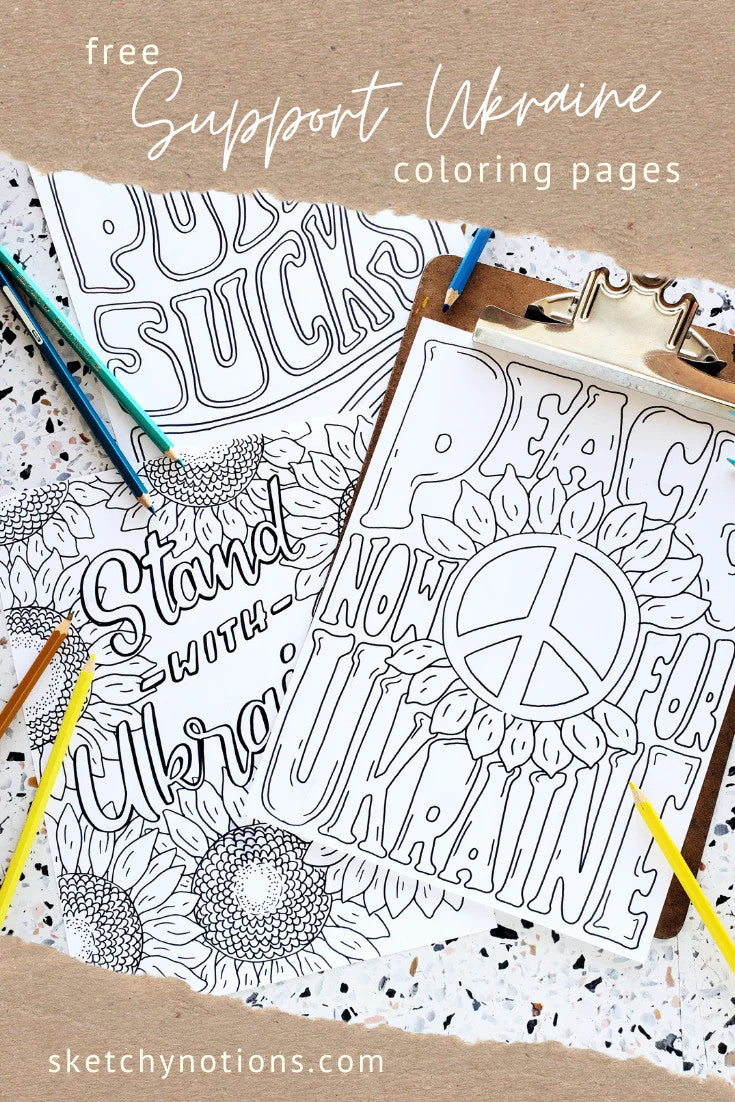 free
Support Ukraine
coloring pages
SUCKS
PEACE
NOW FOR
UKRAINE
Stand
-WITH-
Ukrai
sketchynotions.com